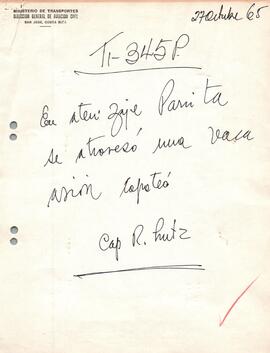 MINISTERIO DE TRANSPORTES
DIRECCION GENERAL DE AVIACION CIVIL
SAN JOSE, COSTA RICA
27 Octubre 65
TI-345P.
En aterrizaje Parrita
se atravesó una vaca
avión capoteó
Cap R.